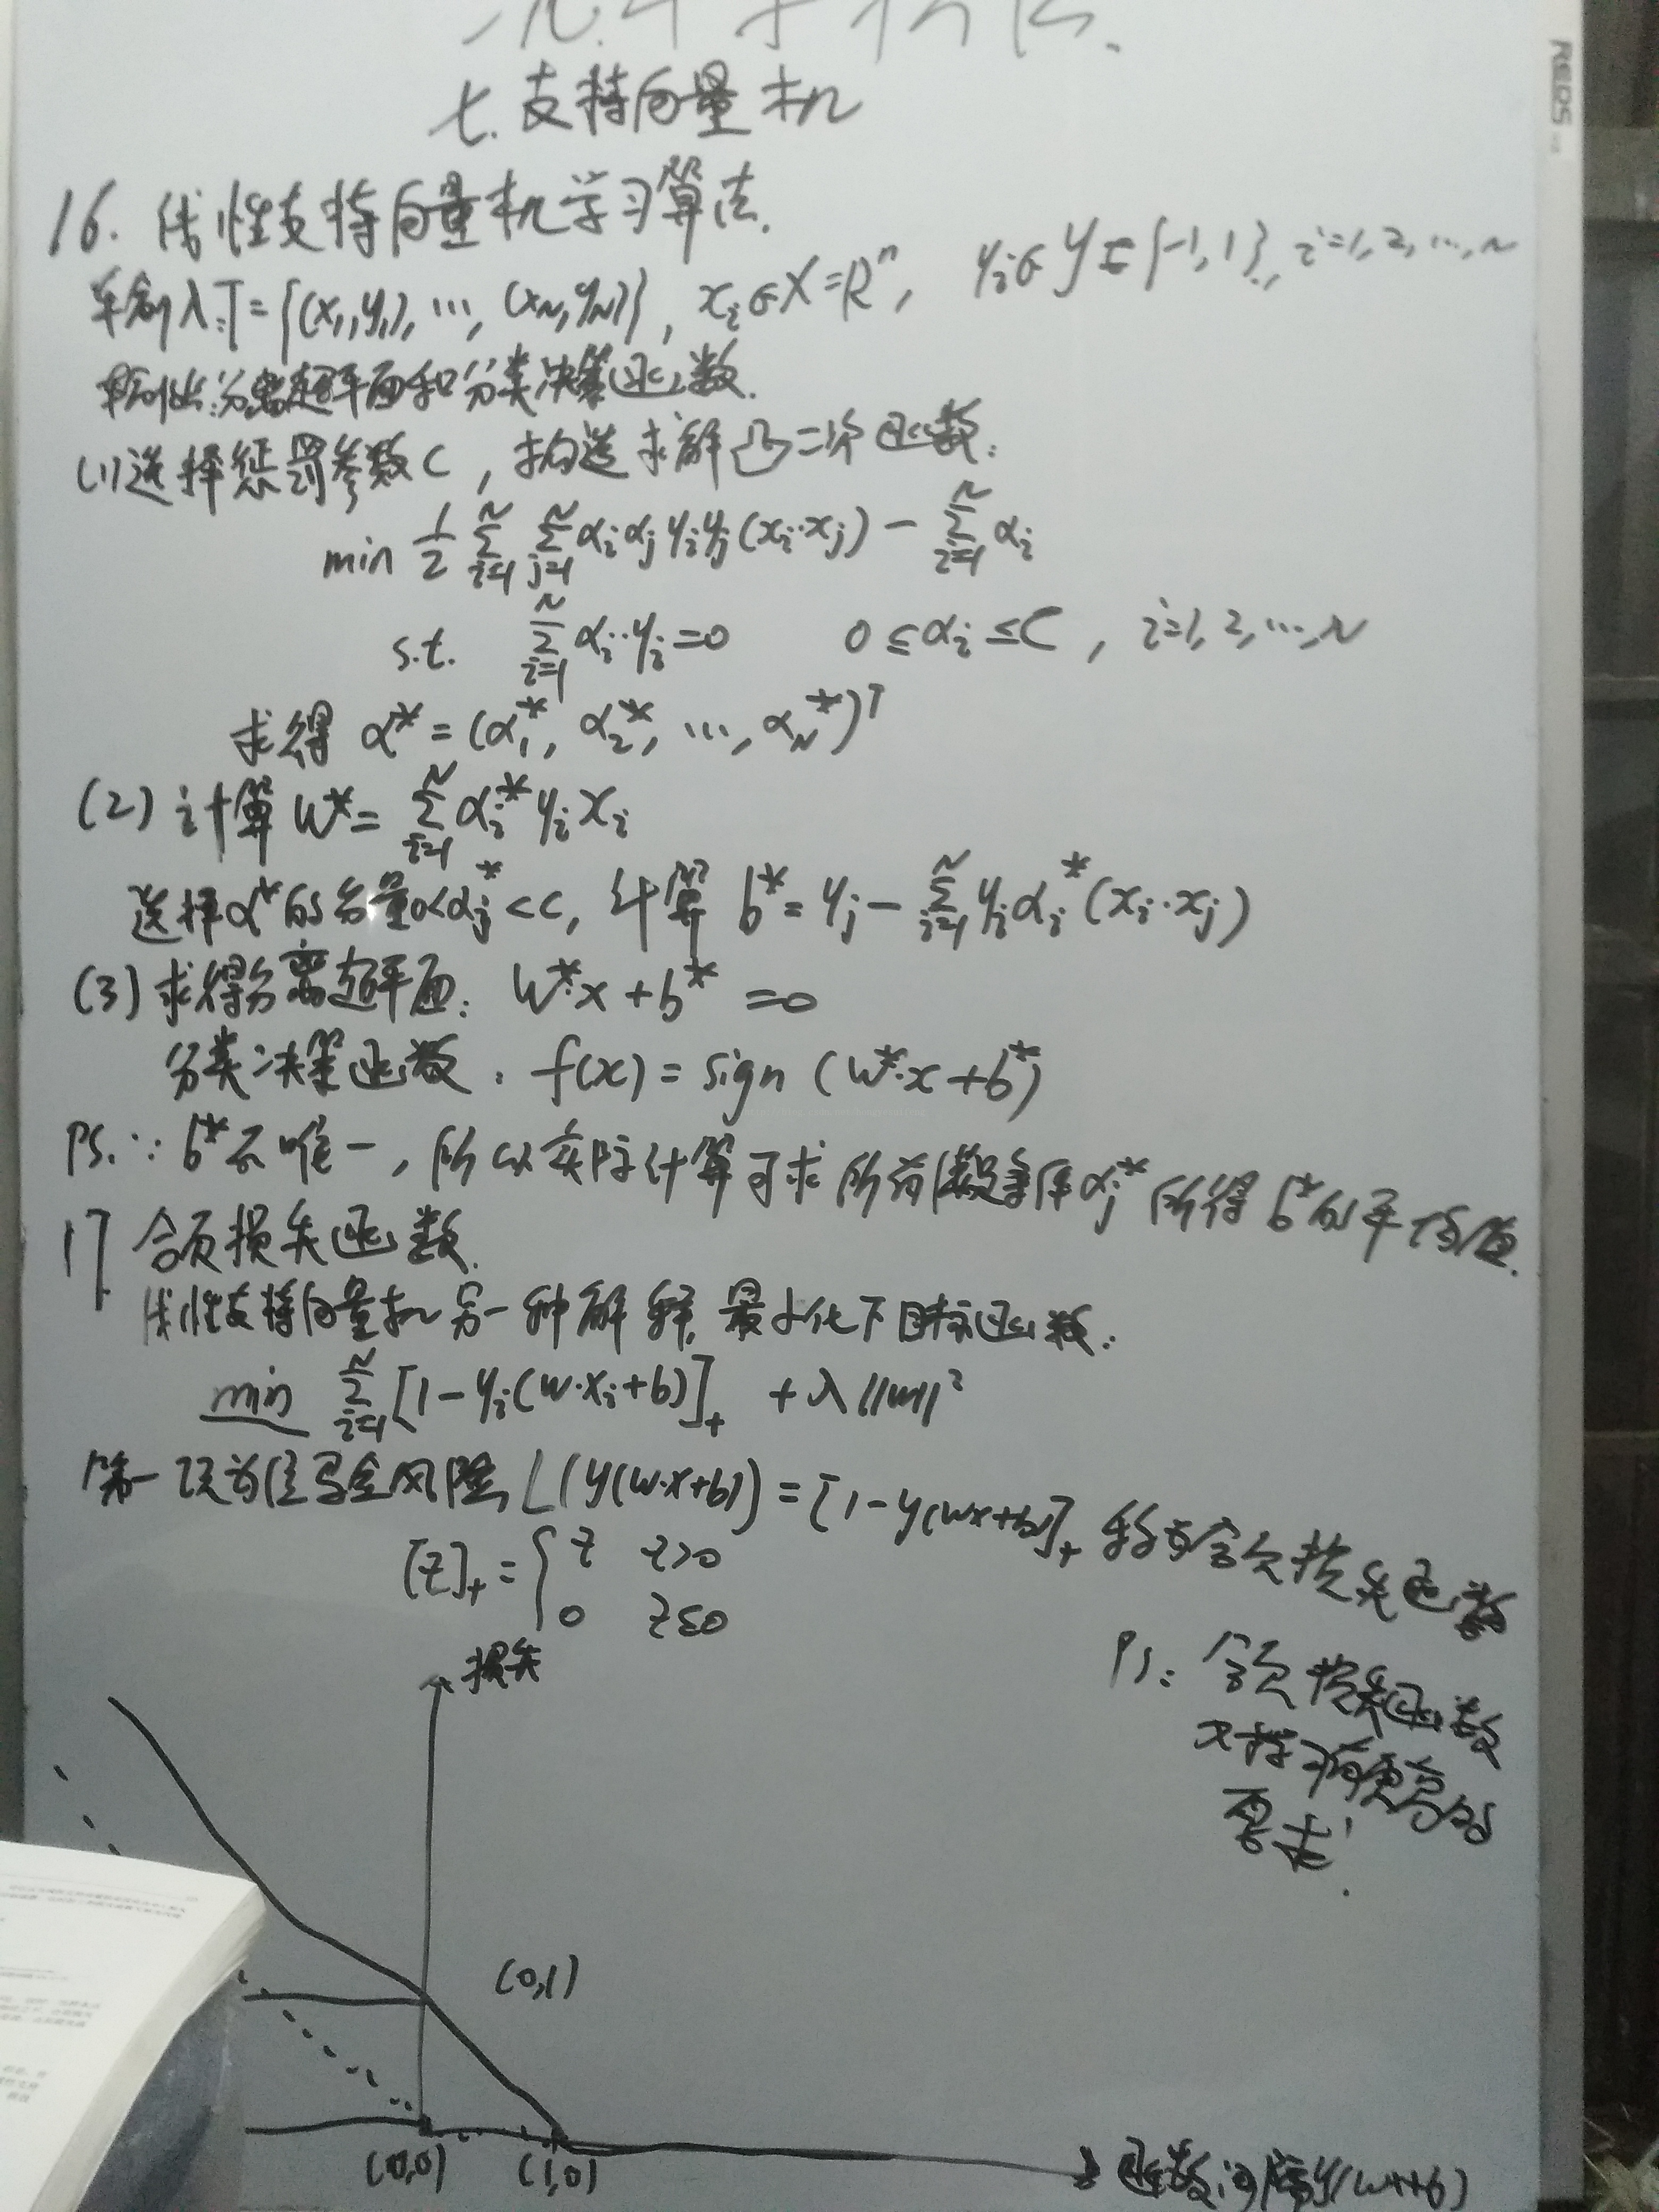 七.支持向量机
16. 线性支持向量机学习算法.
输入:T={(x₁,y₁),…,(x_N,y_N)}, x_i∈X=Rⁿ, y_i∈Y={-1,1}, i=1,2,…,N
输出:分离超平面和分类决策函数.
(1)选择惩罚参数C,构造求解凸二次函数:
min 1/2 ∑_{i=1}^N ∑_{j=1}^N α_i α_j y_i y_j (x_i·x_j) - ∑_{i=1}^N α_i
s.t. ∑_{i=1}^N α_i·y_i=0 0≤α_i≤C, i=1,2,…,N
求得 α*=(α₁*, α₂*, …, α_N*)ᵀ
(2)计算 W*= ∑_{i=1}^N α_i* y_i x_i
选择α*的分量0<α_j*<C, 计算 b*=y_j-∑_{i=1}^N y_i α_i*(x_i·x_j)
(3)求得分离超平面: W*·x+b*=0
分类决策函数: f(x)=sign(w*·x+b*)
PS.∵b*不唯一,所以实际计算可求所有满足条件α_j*所得b*的平均值.
17 合页损失函数.
线性支持向量机另一种解释,最小化下目标函数:
min ∑_{i=1}^N [1-y_i(w·x_i+b)]₊ +λ||w||²
第一项为经验风险, L(y(w·x+b))=[1-y(wx+b)]₊ 称为合页损失函数
[z]₊={z z>0
0 z≤0
损失
PS: 合页损失函数
对学习有更高的
要求.
(0,1)
(0,0) (1,0)
函数间隔y(wx+b)
REDS